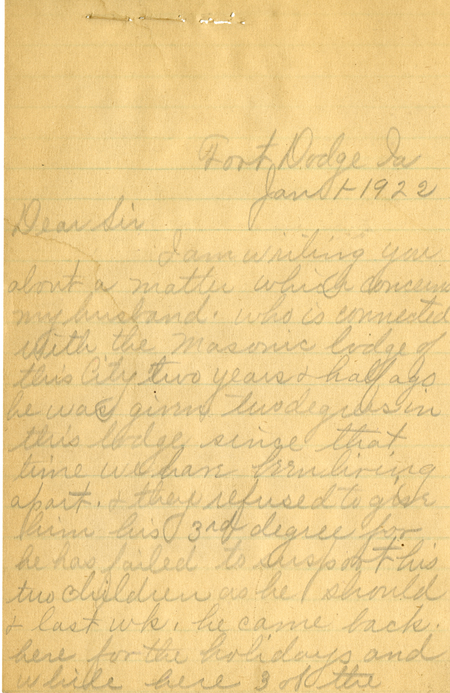 Fort Dodge Ia
Jan 1-1922
Dear Sir
I am writing you
about a matter which concerns
my husband. who is connected
with the Masonic lodge of
this City two years & half ago
he was given two degrees in
this lodge since that
time we have been living
apart. & they refused to give
him his 3rd degree for
he has failed to support his
two children as he should
& last wk. he came back.
here for the holidays and
while here 3 of the